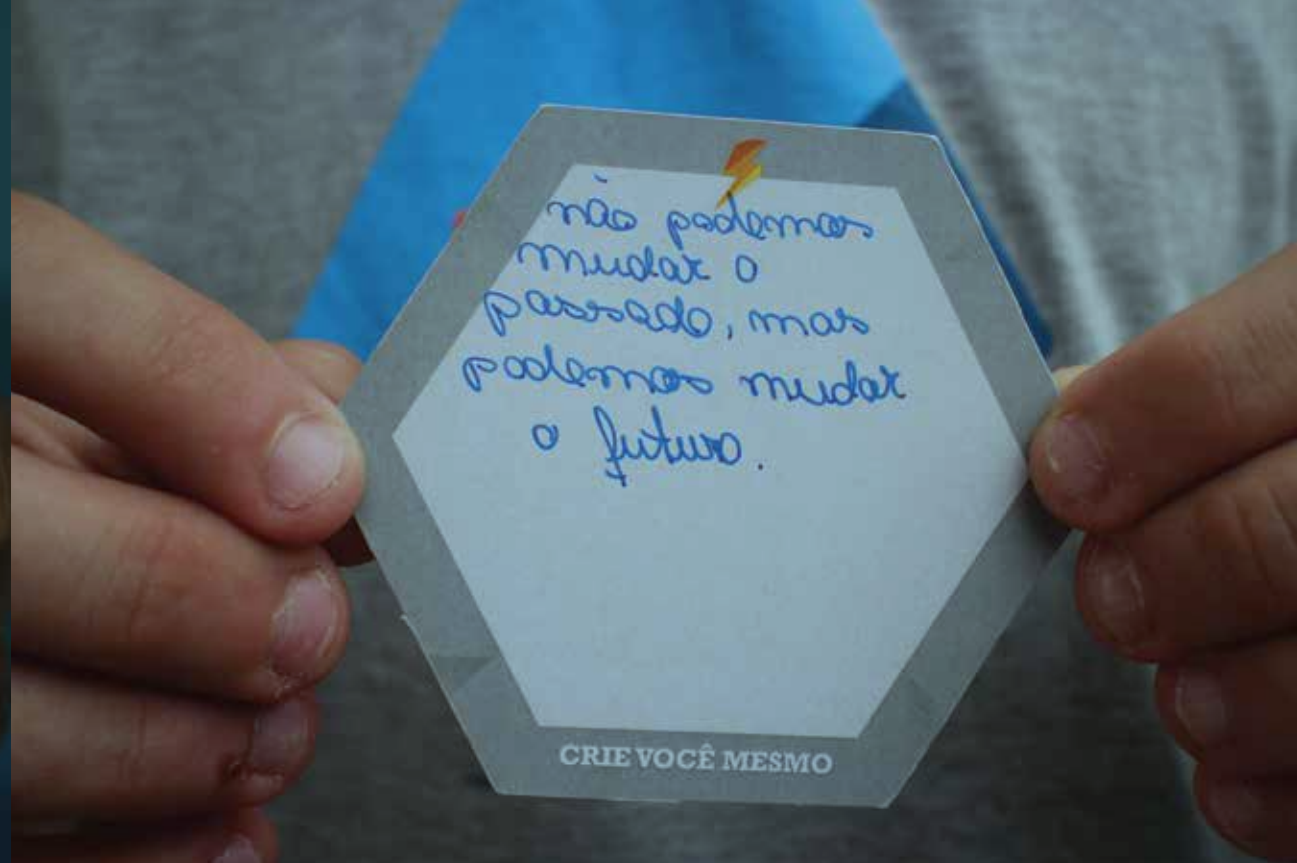 não podemos
mudar o
passado, mas
podemos mudar
o futuro.
CRIE VOCÊ MESMO